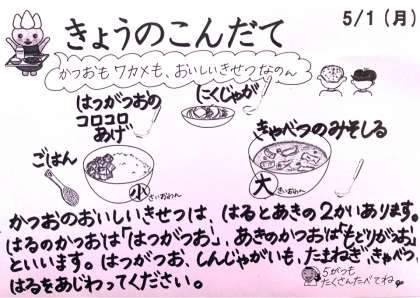 5/1(月)
きょうのこんだて
かつおもワカメも、おいしいきせつなのん
はつがつおの
コロコロ
あげ
にくじゃが
きゃべつのみそしる
ごはん
小
さいおわん
大
さいおわん
かつおのおいしいきせつは、はるとあきの2かいあります。
はるのかつおは「はつがつお」、あきのかつおは「もどりがつお」
といいます。はつがつお、しんじゃがいも、たまねぎ、きゃべつ、
はるをあじわってください。
5がつも
たくさんたべてね